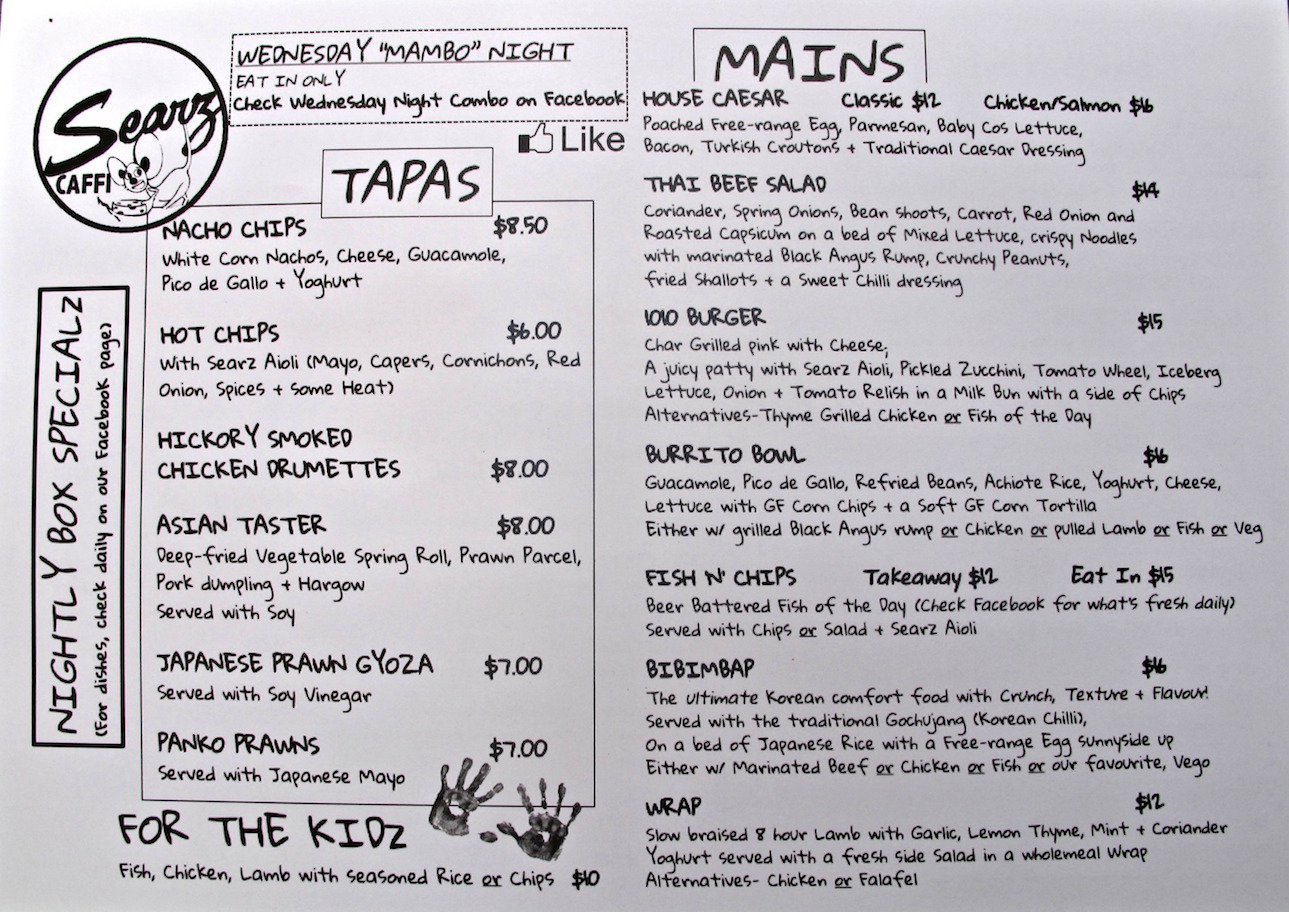 Searz
CAFFI
WEDNESDAY "MAMBO" NIGHT
EAT IN ONLY
Check Wednesday Night Combo on Facebook
Like
NIGHTLY BOX SPECIALZ
(For dishes, check daily on our Facebook page)
TAPAS
NACHO CHIPS $8.50
White Corn Nachos, Cheese, Guacamole,
Pico de Gallo + Yoghurt
HOT CHIPS $6.00
With Searz Aioli (Mayo, Capers, Cornichons, Red
Onion, Spices + some Heat)
HICKORY SMOKED
CHICKEN DRUMETTES $8.00
ASIAN TASTER $8.00
Deep-fried Vegetable Spring Roll, Prawn Parcel,
Pork dumpling + Hargow
Served with Soy
JAPANESE PRAWN GYOZA $7.00
Served with Soy Vinegar
PANKO PRAWNS $7.00
Served with Japanese Mayo
FOR THE KIDz
Fish, Chicken, Lamb with seasoned Rice or Chips $10
MAINS
HOUSE CAESAR Classic $12 Chicken/Salmon $16
Poached Free-range Egg, Parmesan, Baby Cos Lettuce,
Bacon, Turkish Croutons + Traditional Caesar Dressing
THAI BEEF SALAD $14
Coriander, Spring Onions, Bean shoots, Carrot, Red Onion and
Roasted Capsicum on a bed of Mixed Lettuce, crispy Noodles
with marinated Black Angus Rump, Crunchy Peanuts,
fried Shallots + a Sweet Chilli dressing
1010 BURGER $15
Char Grilled pink with Cheese,
A juicy patty with Searz Aioli, Pickled Zucchini, Tomato Wheel, Iceberg
Lettuce, Onion + Tomato Relish in a Milk Bun with a side of Chips
Alternatives-Thyme Grilled Chicken or Fish of the Day
BURRITO BOWL $16
Guacamole, Pico de Gallo, Refried Beans, Achiote Rice, Yoghurt, Cheese,
Lettuce with GF Corn Chips + a Soft GF Corn Tortilla
Either w/ grilled Black Angus rump or Chicken or pulled Lamb or Fish or Veg
FISH N' CHIPS Takeaway $12 Eat In $15
Beer Battered Fish of the Day (Check Facebook for what's fresh daily)
Served with Chips or Salad + Searz Aioli
BIBIMBAP $16
The ultimate Korean comfort food with Crunch, Texture + Flavour!
Served with the traditional Gochujang (Korean Chilli),
On a bed of Japanese Rice with a Free-range Egg sunnyside up
Either w/ Marinated Beef or Chicken or Fish or our favourite, Vego
WRAP $12
Slow braised 8 hour Lamb with Garlic, Lemon Thyme, Mint + Coriander
Yoghurt served with a fresh side Salad in a wholemeal Wrap
Alternatives- Chicken or Falafel